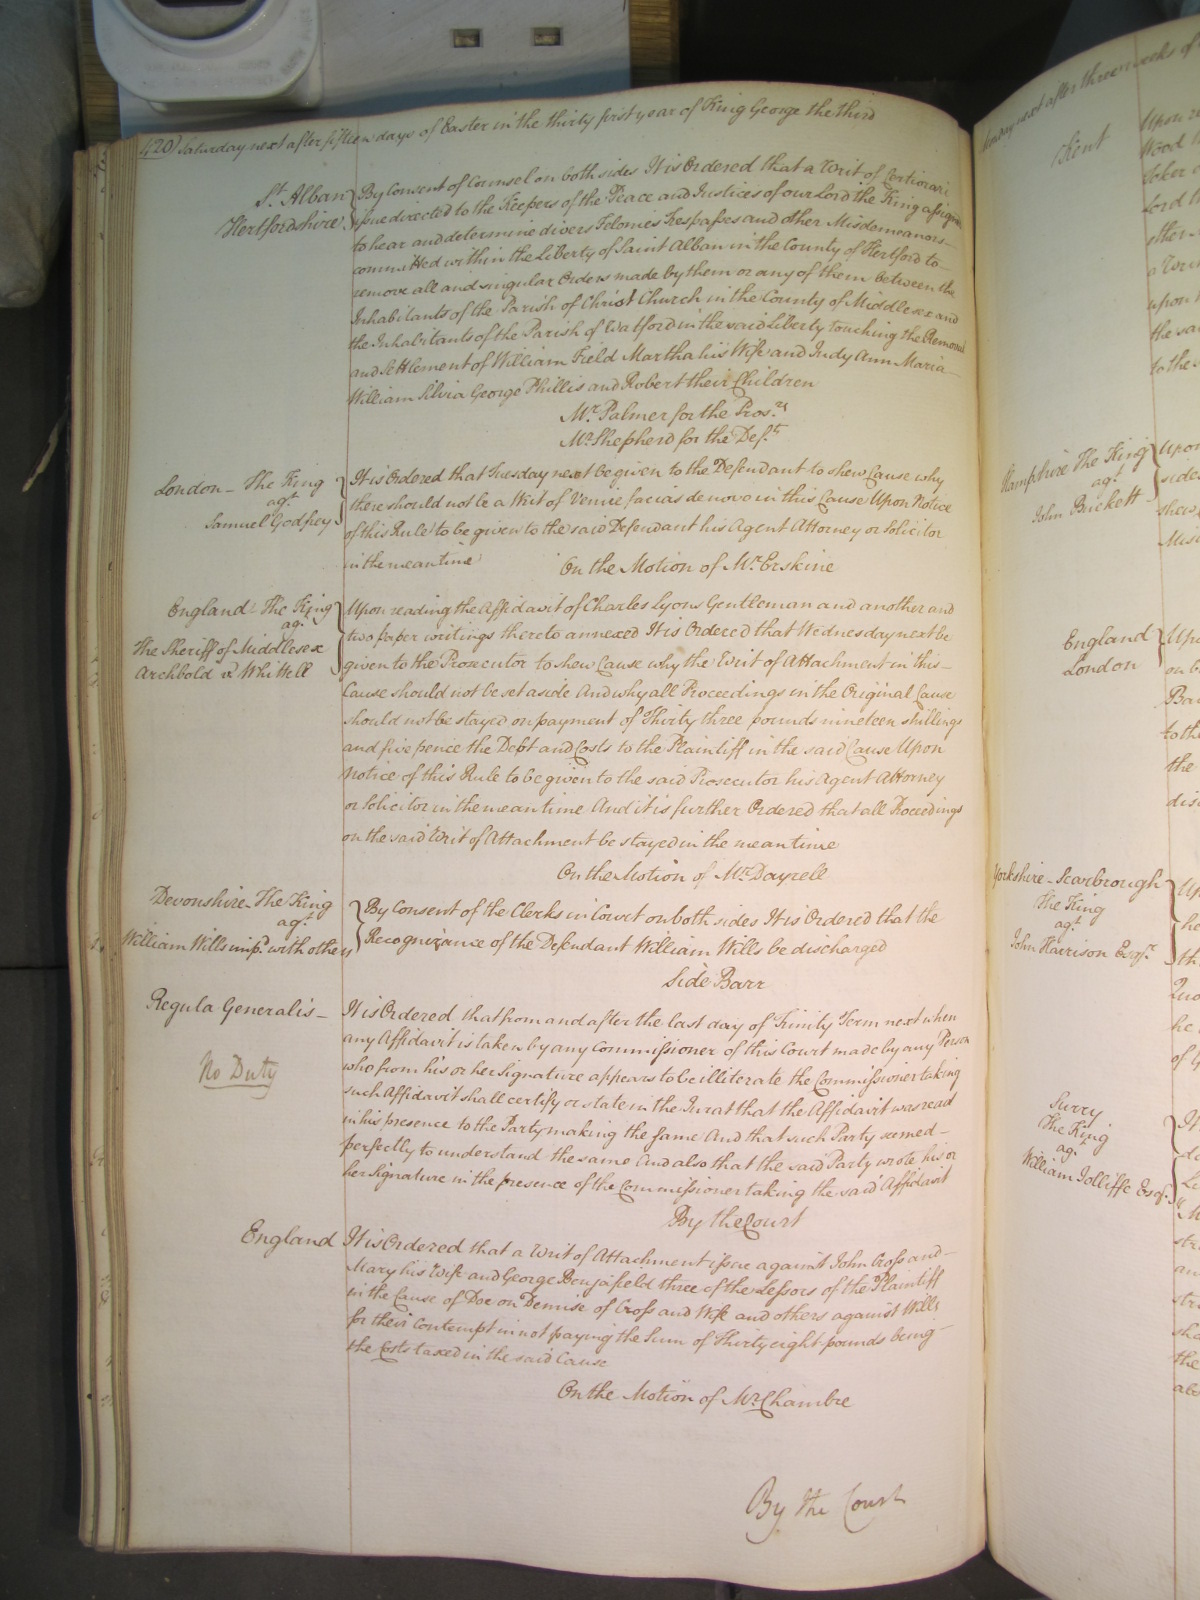 420) Saturday next after fifteen days of Easter in the thirty first year of King George the third
St. Alban
Hertfordshire
By Consent of Counsel on both sides It is Ordered that a Writ of Certiorari
issue directed to the Keepers of the Peace and Justices of our Lord the King assigned
to hear and determine divers Felonies Trespasses and other Misdemeanors
committed within the Liberty of Saint Alban in the County of Hertford to
remove all and singular Orders made by them or any of them between the
Inhabitants of the Parish of Christ Church in the County of Middlesex and
the Inhabitants of the Parish of Watford in the said Liberty touching the Removal
and Settlement of William Field Martha his Wife and Judy Ann Maria
William Silvia George Phillis and Robert their Children
Mr. Palmer for the Pros.rs
Mr. Shepherd for the Def.ts
London - The King
agt.
Samuel Godfrey
It is Ordered that Tuesday next be given to the Defendant to shew Cause why
there should not be a Writ of Venire facias de novo in this Cause Upon Notice
of this Rule to be given to the said Defendant his Agent Attorney or Solicitor
in the mean time
On the Motion of Mr. Erskine
England - The King
agt.
The Sheriff of Middlesex
Archbold v Whittell
Upon reading the Affidavit of Charles Lyons Gentleman and another and
two paper writings thereto annexed It is Ordered that Wednesday next be
given to the Prosecutor to shew Cause why the Writ of Attachment in this
Cause should not be set aside And why all Proceedings in the Original Cause
should not be stayed on payment of Thirty three pounds nineteen shillings
and five pence the Debt and Costs to the Plaintiff in the said Cause Upon
Notice of this Rule to be given to the said Prosecutor his Agent Attorney
or Solicitor in the mean time And it is further Ordered that all Proceedings
on the said Writ of Attachment be stayed in the mean time
On the Motion of Mr. Dayrell
Devonshire - The King
agt.
William Wills imp.d with others
By Consent of the Clerks in Court on both sides It is Ordered that the
Recognizance of the Defendant William Wills be discharged
Side Barr
Regula Generalis -
No Duty
It is Ordered that from and after the last day of Trinity Term next when
any Affidavit is taken by any Commissioner of this Court made by any Person
who from his or her signature appears to be illiterate the Commissioner taking
such Affidavit shall certify or state in the Jurat that the Affidavit was read
in his presence to the Party making the same And that such Party seemed
perfectly to understand the same And also that the said Party wrote his or
her Signature in the presence of the Commissioner taking the said Affidavit
By the Court
England
It is Ordered that a Writ of Attachment issue against John Cross and
Mary his Wife and George Benjafield three of the Lessors of the Plaintiff
in the Cause of Doe on Demise of Cross and Wife and others against Wills
for their Contempt in not paying the Sum of Thirty eight pounds being
the Costs taxed in the said Cause
On the Motion of Mr. Chambre
By the Court
next after three weeks of
Kent
Upon
Hampshire The King
agt.
John Buckett
Upon
sides
shew
England
London
on
to the
the
Yorkshire - Scarbrough
The King
agt.
John Harrison Esqr.
he
of
Surry
The King
agt.
William Jolliffe Esqr.